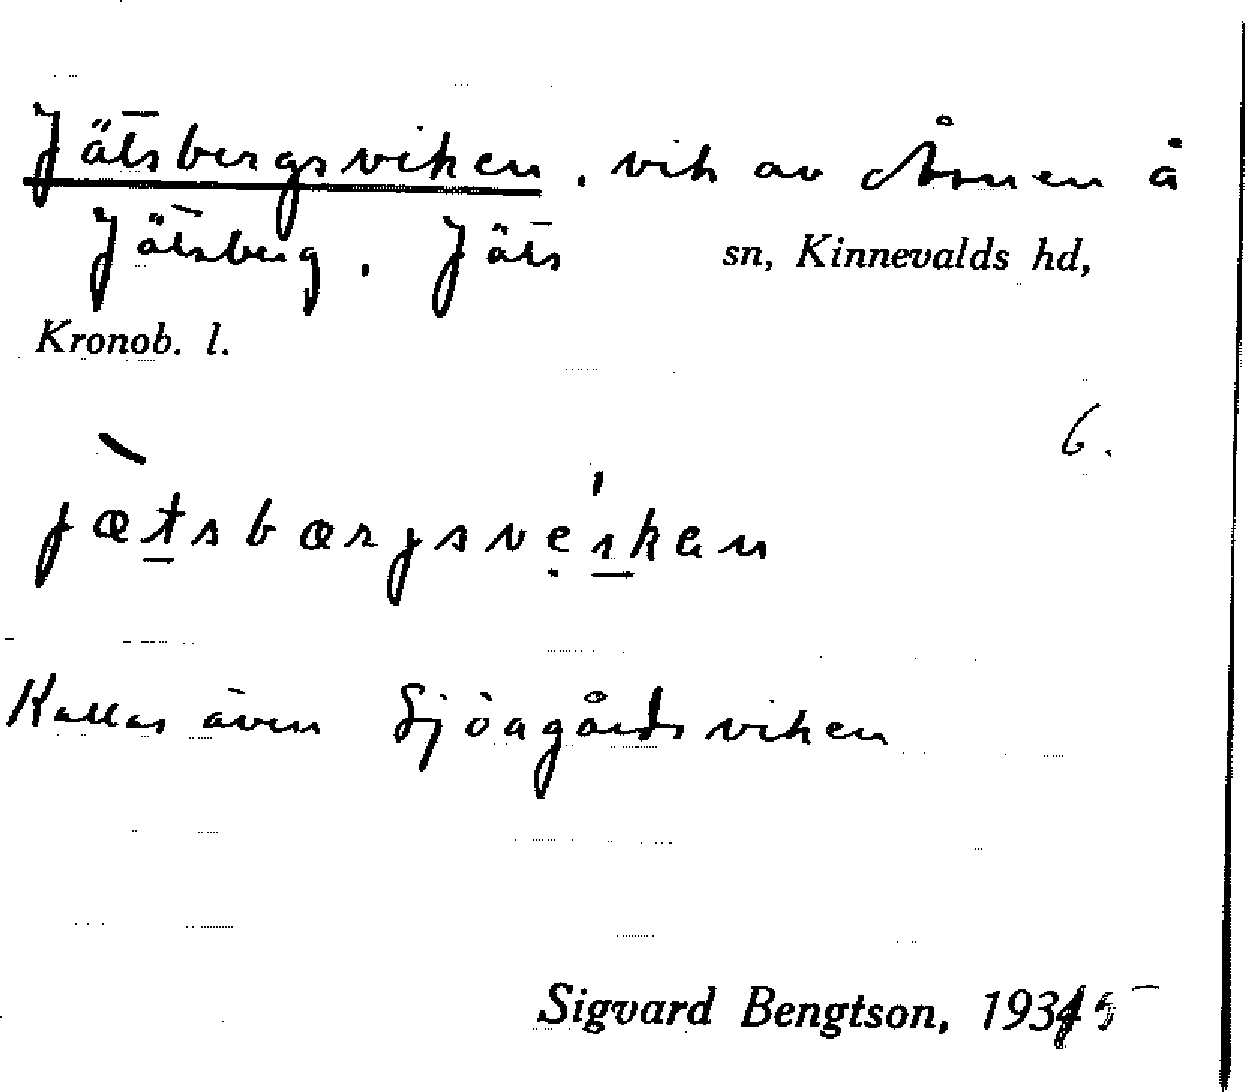 Jätsbergsviken, vik av Åsnen å
Jätsberg, Jäts sn, Kinnevalds hd,
Kronob. l.
6.
jætsbærjsveıken
Kallas även Sjöagårdsviken
Sigvard Bengtson, 1935